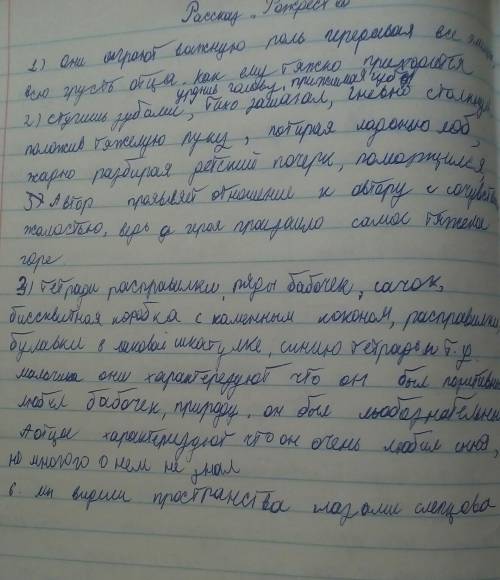 Рассказ "Рождество
1) они играют важную роль передавая все
всю грусть отца. как ему тяжко приходится
уронив голову, прижимая губ
2) стучишь зубами, тихо зашагал, гневно столкнул
положив тяжелую руку, потирая ладонью лоб,
жарко разбирая детский почерк, поморщился,
5) Автор проявывет отношение к автору с сочувств
жалостью, ведь у героя произашло самое тяжелое
горе
3) тетради расправилки, ряды бабочек, сачок,
бисквитная коробка с каменным коконом, расправилки
булавки в лаковой шкатулке, синию тетрадь и т.д.
мальчика они характерезуют что он был
любил бабочек, природу, он был льобознательным
А отца характерезуют что он очень любил сына,
но многого о нем не знал
6. мы видели пространства глазами слепцова